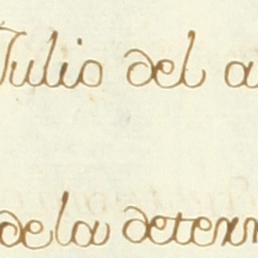 Julio del a
de la determ